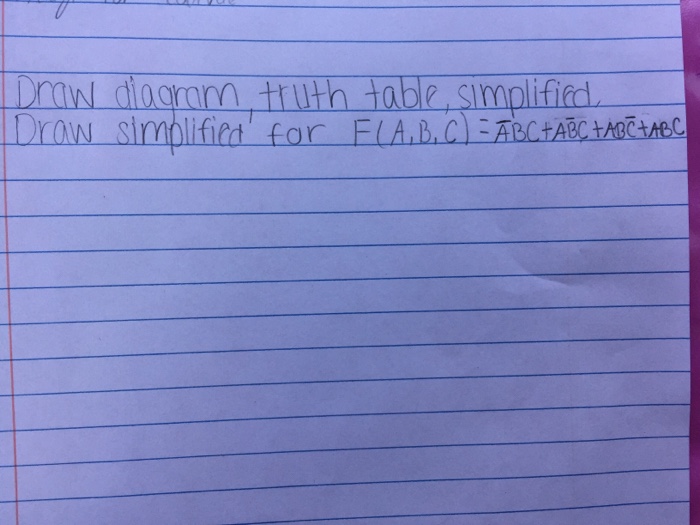 Draw diagram, truth table, simplified.
Draw simplified for F(A,B,C) = A̅BC+AB̅C+ABC̅+ABC